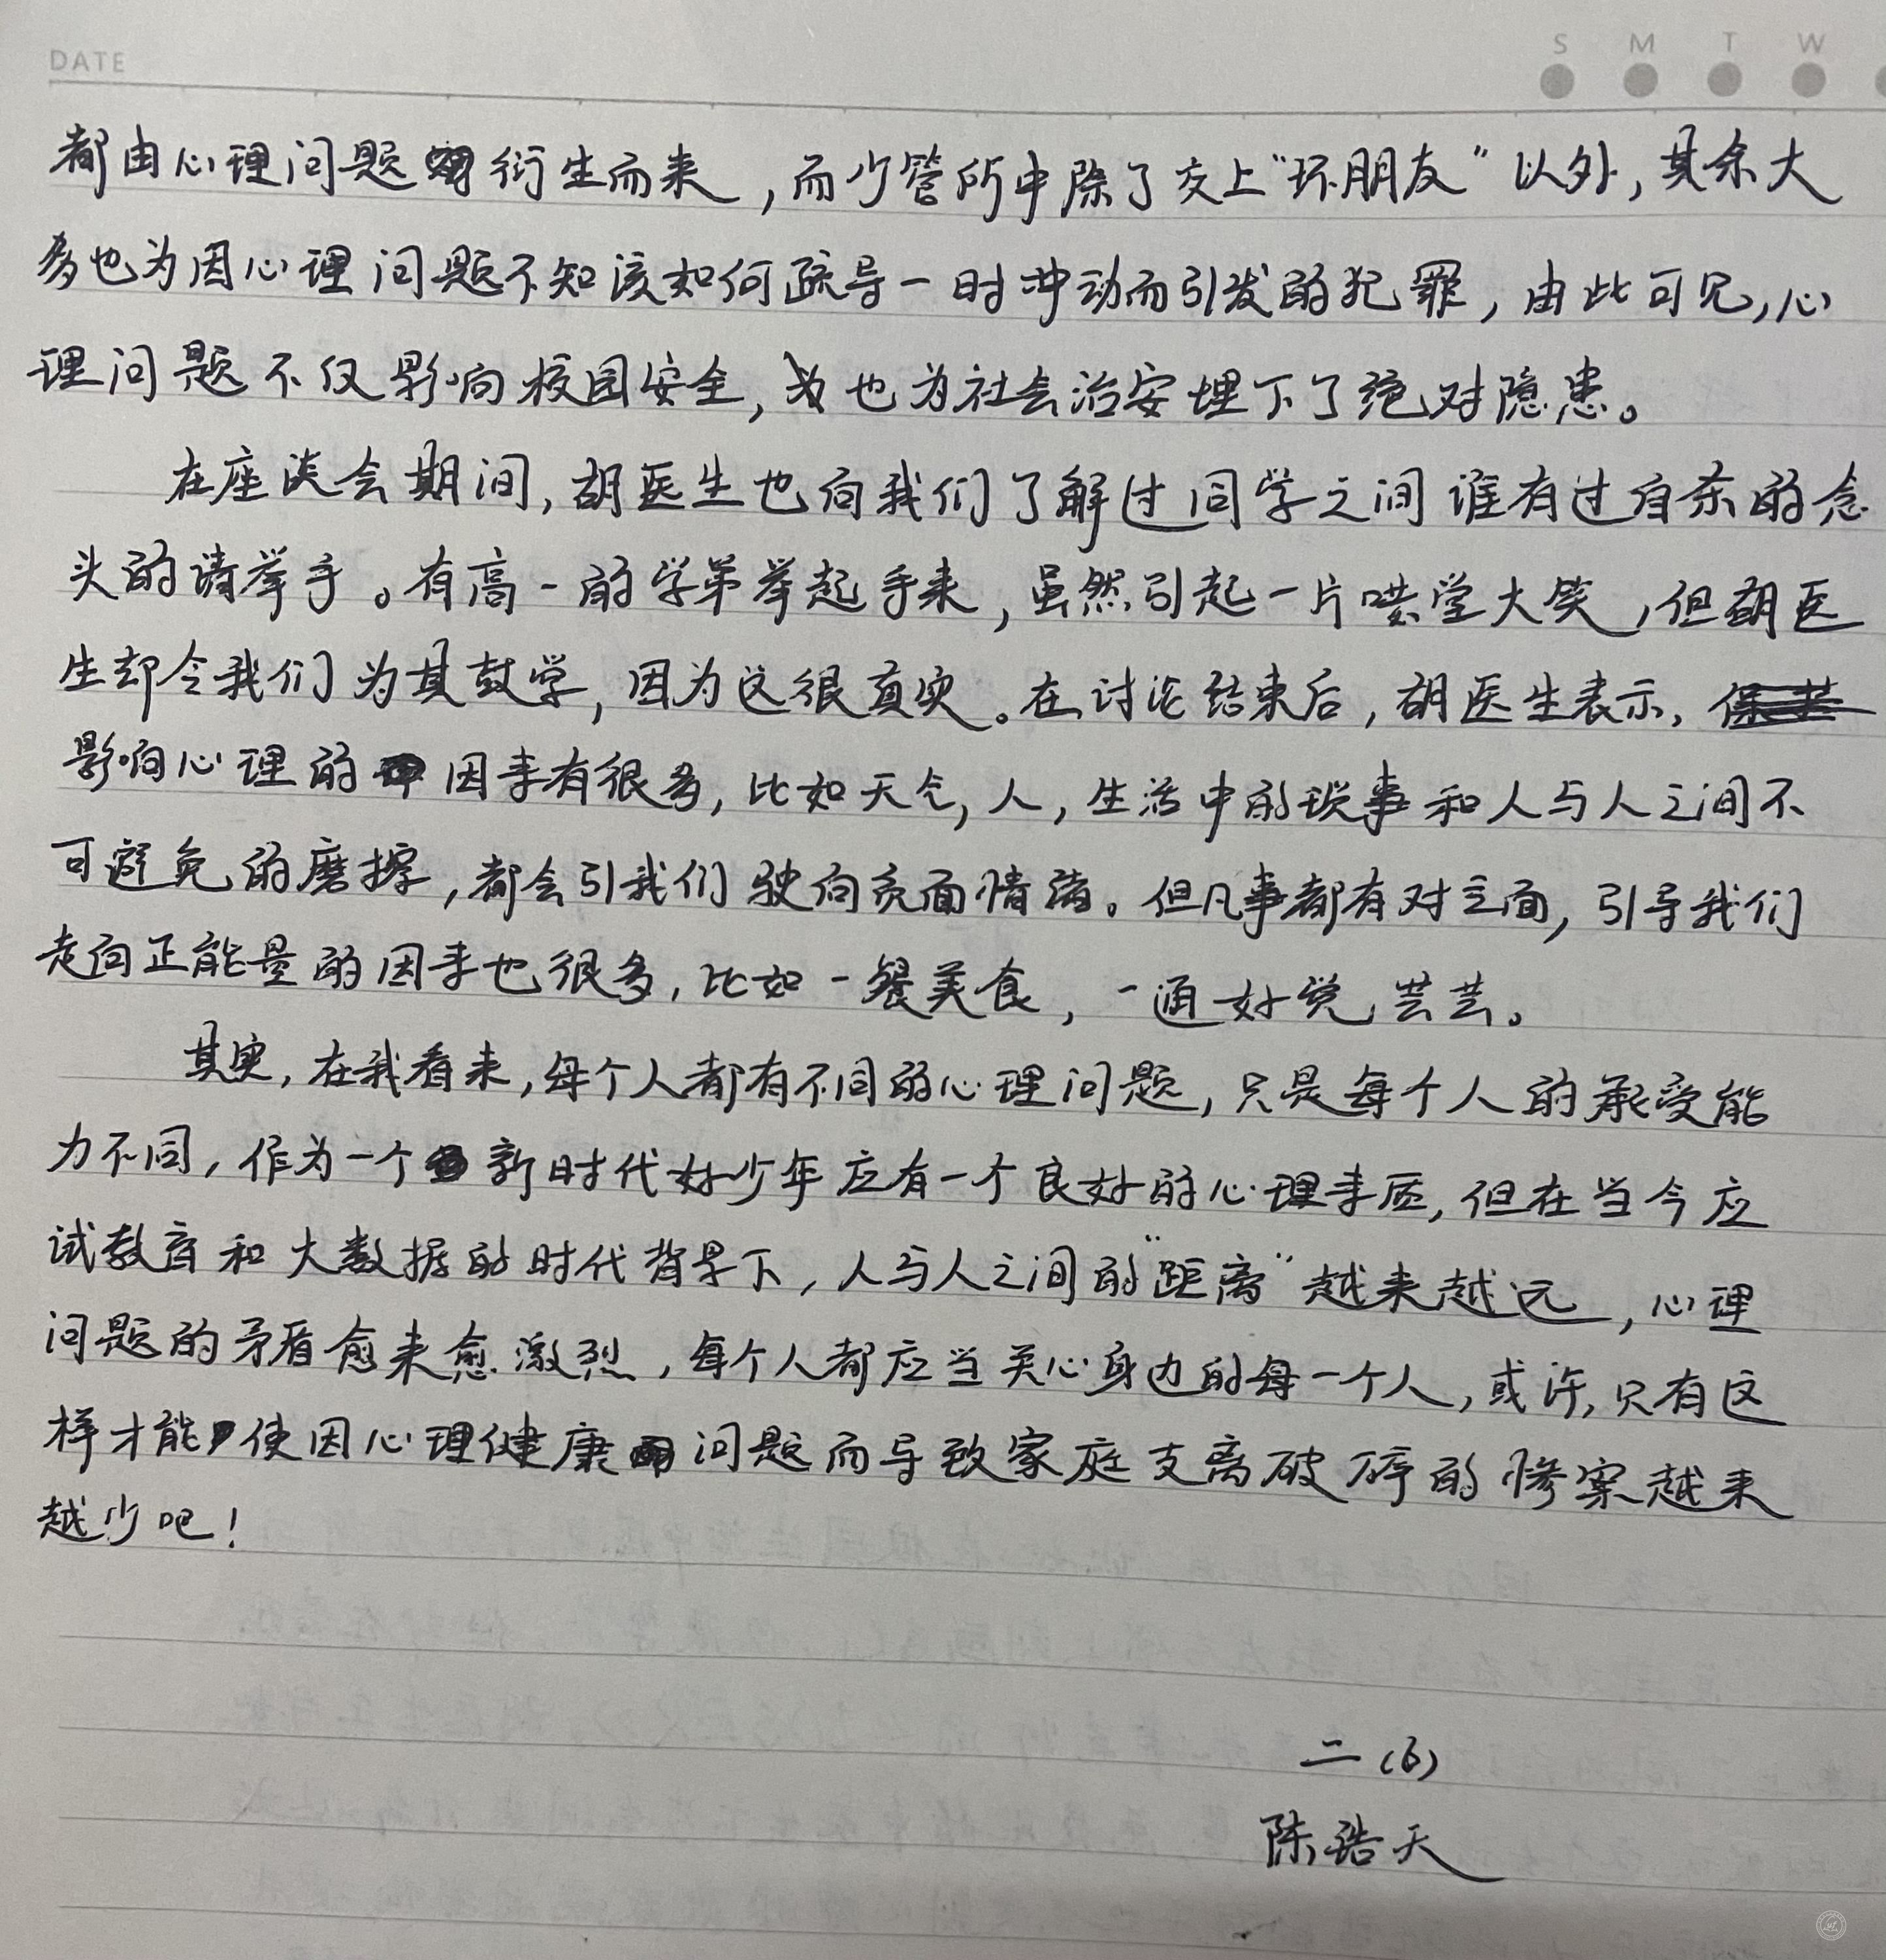 DATE
S M T W
都由心理问题衍生而来，而少管所中除了交上“坏朋友”以外，其余大
多也为因心理问题不知该如何疏导一时冲动而引发的犯罪，由此可见，心
理问题不仅影响校园安全，也为社会治安埋下了绝对隐患。
在座谈会期间，胡医生也向我们了解过同学之间谁有过自杀的念
头的请举手。有高一的学弟举起手来，虽然引起一片哄堂大笑，但胡医
生却令我们为其鼓掌，因为这很真实。在讨论结束后，胡医生表示，
影响心理的因素有很多，比如天气，人，生活中的琐事和人与人之间不
可避免的磨擦，都会引我们驶向负面情绪。但凡事都有对立面，引导我们
走向正能量的因素也很多，比如一餐美食，一通好觉，芸芸。
其实，在我看来，每个人都有不同的心理问题，只是每个人的承受能
力不同，作为一个新时代好少年应有一个良好的心理素质，但在当今应
试教育和大数据的时代背景下，人与人之间的“距离”越来越远，心理
问题的矛盾愈来愈激烈，每个人都应当关心身边的每一个人，或许，只有这
样才能使因心理健康问题而导致家庭支离破碎的惨案越来
越少吧！
二（6）
陈浩天